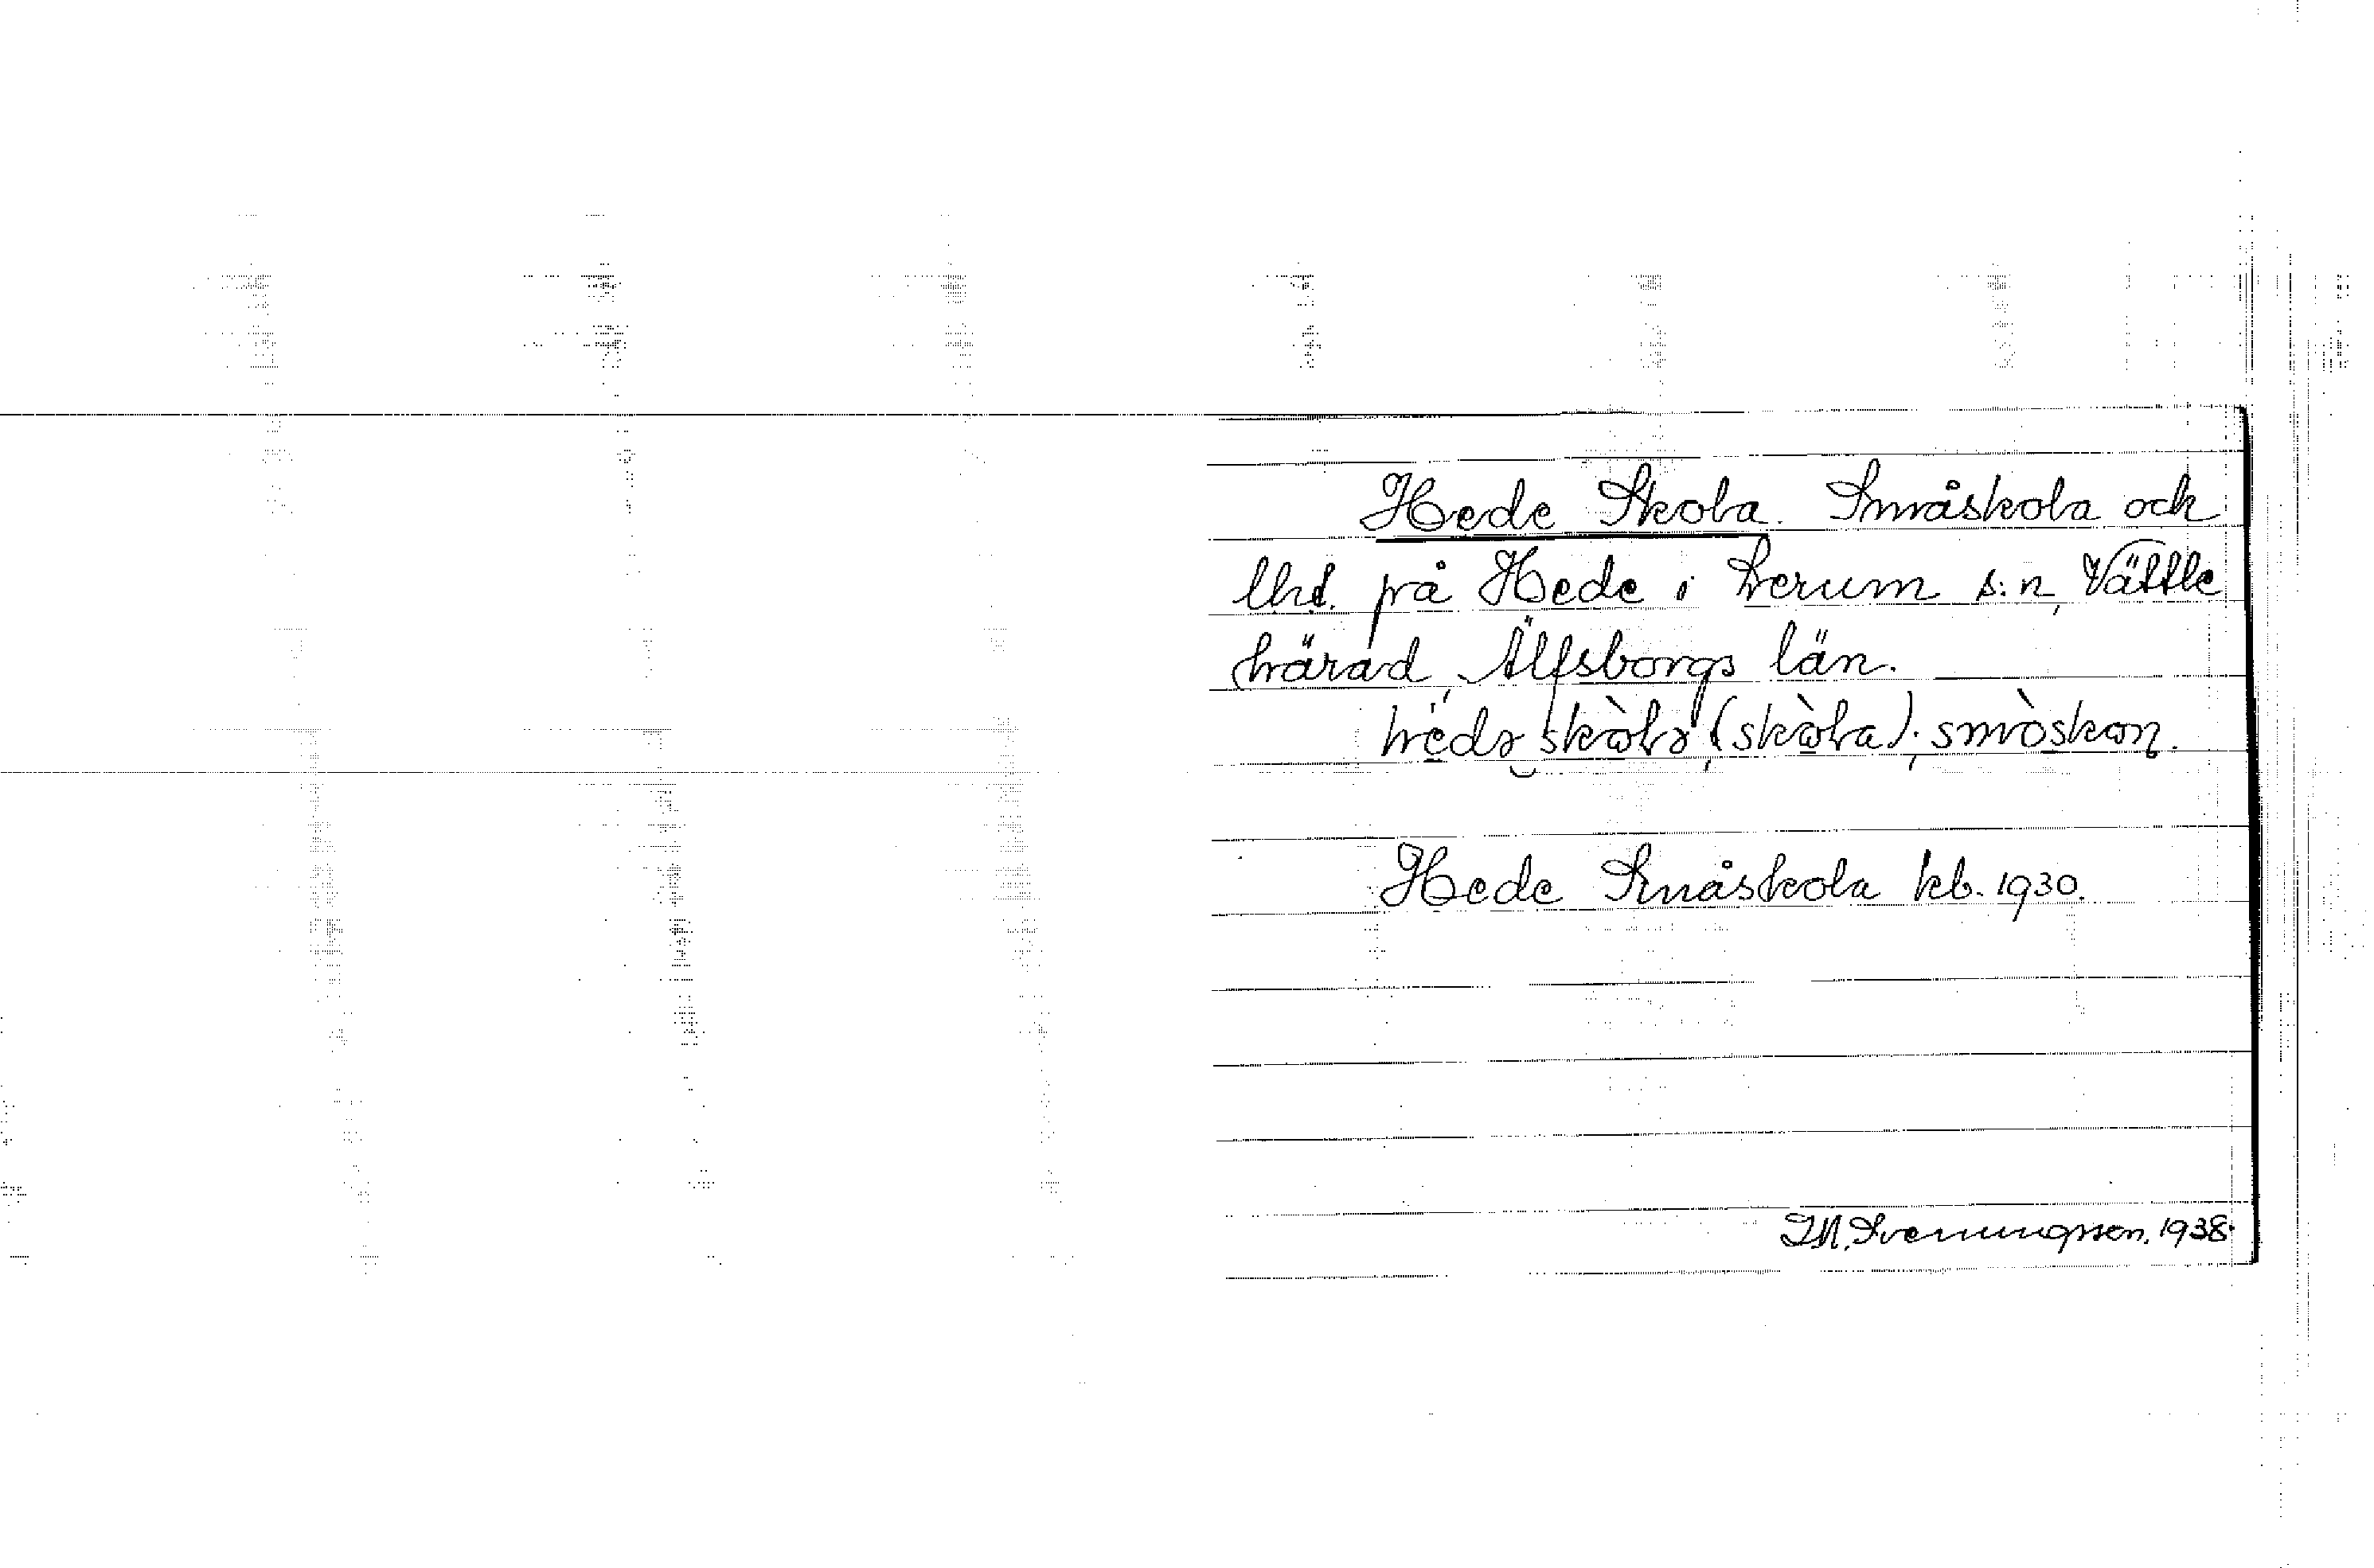 Hede Skola. Småskola och
lht. på Hede i Lerum s:n, Vättle
härad, Älfsborgs län.
hèdə skòla (skòla); smòskon.
Hede Småskola kb. 1930.
I.M. Svenungsson. 1938.